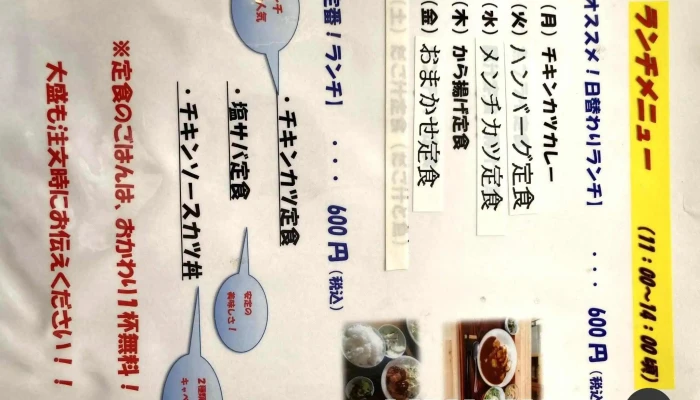 ランチメニュー (11:00~14:00頃)
オススメ!日替わりランチ】 ・・・ 600円(税込
(月) チキンカツカレー
(火) ハンバーグ定食
(水) メンチカツ定食
(木) から揚げ定食
(金) おまかせ定食
定番!ランチ】 ・・・ 600円(税込)
・チキンカツ定食
人気
・塩サバ定食
安定の
美味しさ!
・チキンソースカツ丼
2種類
キャベ
※定食のごはんは、おかわり1杯無料!
大盛も注文時にお伝えください!!